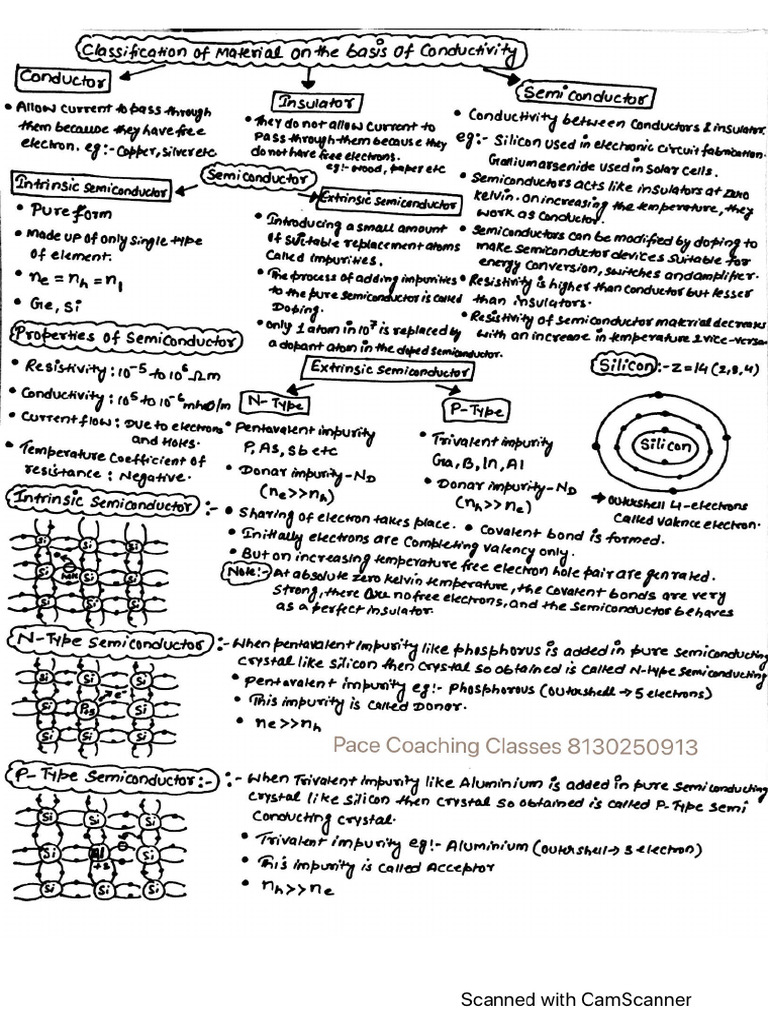 Classification of Material on the basis of Conductivity
Conductor
• Allow current to pass through
them because they have free
electron. eg:- Copper, silver etc
Insulator
• They do not allow current to
pass through them because they
do not have free electrons.
eg:- wood, paper etc
Semiconductor
• Conductivity between conductors & insulator.
eg:- Silicon used in electronic circuit fabrication.
Galiumarsenide used in Solar cells.
• Semiconductors acts like insulators at zero
kelvin. on increasing the temperature, they
work as conductor.
• Semiconductors can be modified by doping to
make semiconductor devices suitable for
energy conversion, switches and amplifier.
• Resistivity is higher than conductor but lesser
than insulators.
• Resistivity of semiconductor material decreases
with an increase in temperature & vice-versa
Semiconductor
Intrinsic semiconductor
• Pure form
• Made up of only single type
of element.
• ne = nh = ni
• Ge, Si
Extrinsic semiconductor
• Introducing a small amount
of suitable replacement atoms
called impurities.
• The process of adding impurities
to the pure semiconductor is called
Doping.
• only 1 atom in 10⁷ is replaced by
a dopant atom in the doped semiconductor.
Properties of Semiconductor
• Resistivity : 10⁻⁵ to 10⁶ Ωm
• Conductivity : 10⁵ to 10⁻⁶ mho/m
• Current flow : Due to electrons
and Holes.
• Temperature Coefficient of
resistance : Negative.
Extrinsic semiconductor
N-Type
• Pentavalent impurity
P, As, Sb etc
• Donar impurity-ND
(ne>>nh)
P-Type
• Trivalent impurity
Ga, B, In, Al
• Donar impurity-ND
(nh>>ne)
Silicon :- Z=14 (2,8,4)
Silicon
→ outershell 4-electrons
called valence electron.
Intrinsic Semiconductor :-
• Sharing of electron takes place. • Covalent bond is formed.
• Initially electrons are completing valency only.
• But on increasing temperature free electron hole pair are genrated.
Note:- At absolute zero kelvin temperature, the covalent bonds are very
strong, there are no free electrons, and the semiconductor behaves
as a perfect insulator.
Si Si Si
Si Si Si
Hole
Si Si Si
N-Type Semiconductor :- When pentavalent impurity like phosphorus is added in pure semiconducting
crystal like silicon then crystal so obtained is called N-type semiconducting
• Pentavalent impurity eg:- Phosphorous (outershell → 5 electrons)
• This impurity is called Donor.
• ne>>nh
Si Si Si
Si P+5 e- Si
Si Si Si
Pace Coaching Classes 8130250913
P-Type Semiconductor:- :- When Trivalent impurity like Aluminium is added in pure semiconducting
crystal like silicon then crystal so obtained is called P-Type semi
conducting crystal.
• Trivalent impurity eg:- Aluminium (outershell → 3 electron)
• This impurity is called Acceptor
• nh>>ne
Si Si Si
Si Al +3 Si
Si Si Si
Scanned with CamScanner